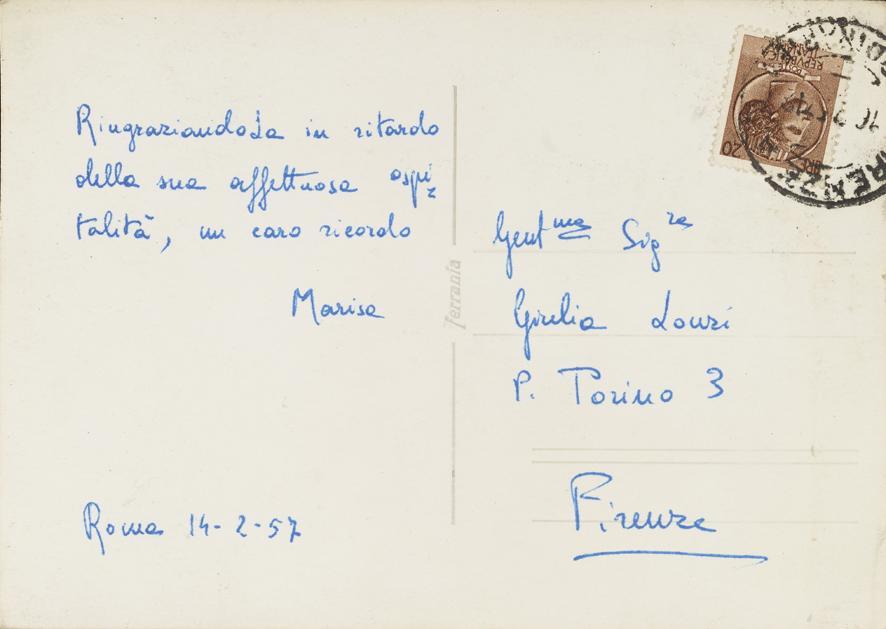 RingraziandoLa in ritardo
della sua affettuosa ospi
talità, un caro ricordo
Marisa
Roma 14-2-57
ferrania
Gent.ma Sig.ra
Giulia
P. Torino 3
Firenze
REPVBBLICA
ITALIANA
POSTE
LIRE 20